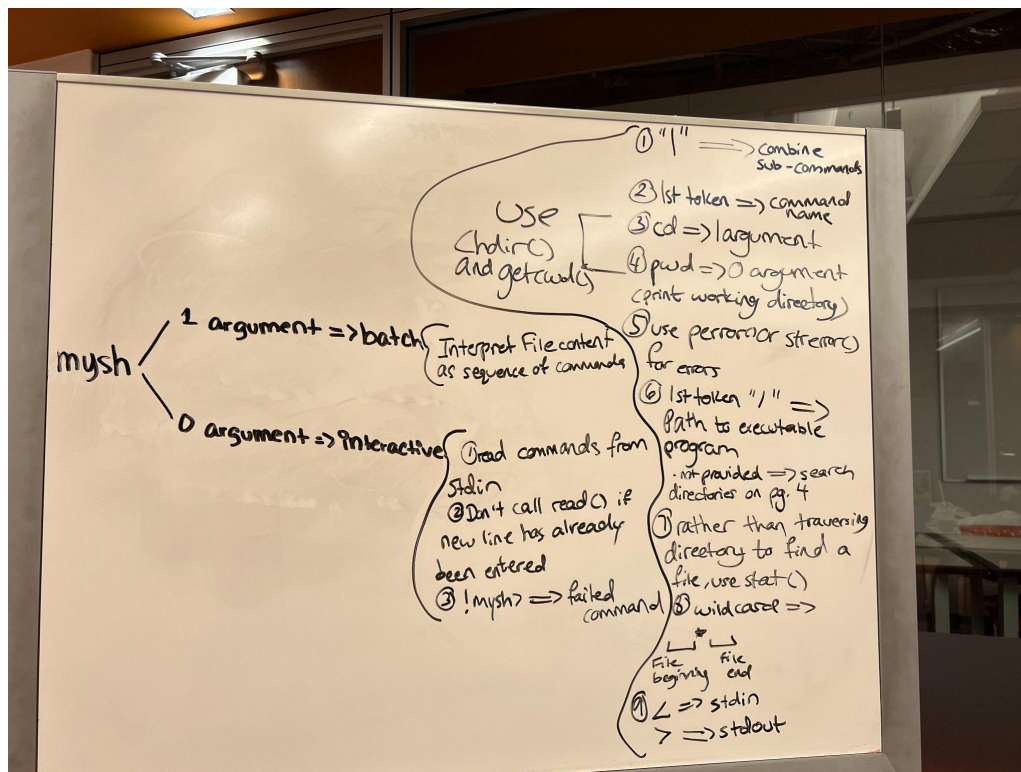 mysh
1 argument => batch
Interpret File content
as sequence of commands
0 argument => interactive
① read commands from
stdin
② Don't call read() if
new line has already
been entered
③ !mysh> => failed
command
Use
chdir()
and getcwd()
① "|" => combine
sub-commands
② 1st token => command
name
③ cd => 1 argument
④ pwd => 0 argument
(print working directory)
⑤ use perror() or strerror()
for errors
⑥ 1st token "/" =>
Path to executable
program
· not provided => search
directories on pg. 4
⑦ rather than traversing
directory to find a
file, use stat()
⑧ wildcard =>
*
File
beginning
file
end
⑨ < => stdin
> => stdout